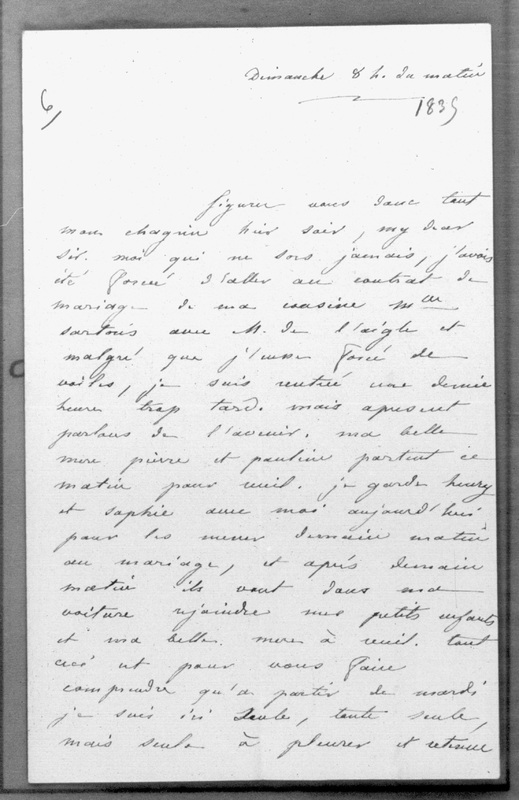 Dimanche 8 h. du matin
6)
1835
figurez vous donc tout
mon chagrin hier soir, my dear
sir. moi qui ne sors jamais, j'avois
été forcée d'aller au contrat de
mariage de ma cousine Mlle
sartoris avec M. de l'aigle et
malgré que j'eusse forcé de
voiles, je suis rentrée une demie
heure trop tard. mais apresent
parlons de l'avenir. ma belle
mere pierre et pauline partent ce
matin pour reuil. je garde henry
et sophie avec moi aujourd'hui
pour les mener demain matin
au mariage, et après demain
matin ils vont dans ma
voiture rejoindre mes petits enfants
et ma belle. mere à reuil. tout
ceci est pour vous faire
comprendre qu'a partir de mardi
je suis ici seule, toute seule,
mais seule à pleurer et retenue